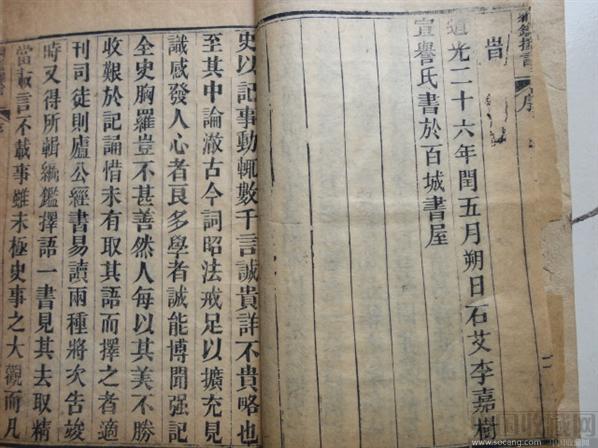 綱鑑擇言
序
旹
道光二十六年閏五月朔日石艾李嘉樹
宣譽氏書於百城書屋
二
史以記事動輒數千言誠貴詳不貴略也
至其中論澈古今詞昭法戒足以擴充見
識感發人心者良多學者誠能博聞强記
全史胸羅豈不甚善然人每以其美不勝
收艱於記誦惜未有取其語而擇之者適
刊司徒則廬公經書易讀兩種將次告竣
時又得所輯綱鑑擇語一書見其去取精
當故言不載事雖未極史事之大觀而凡
www.socang.com